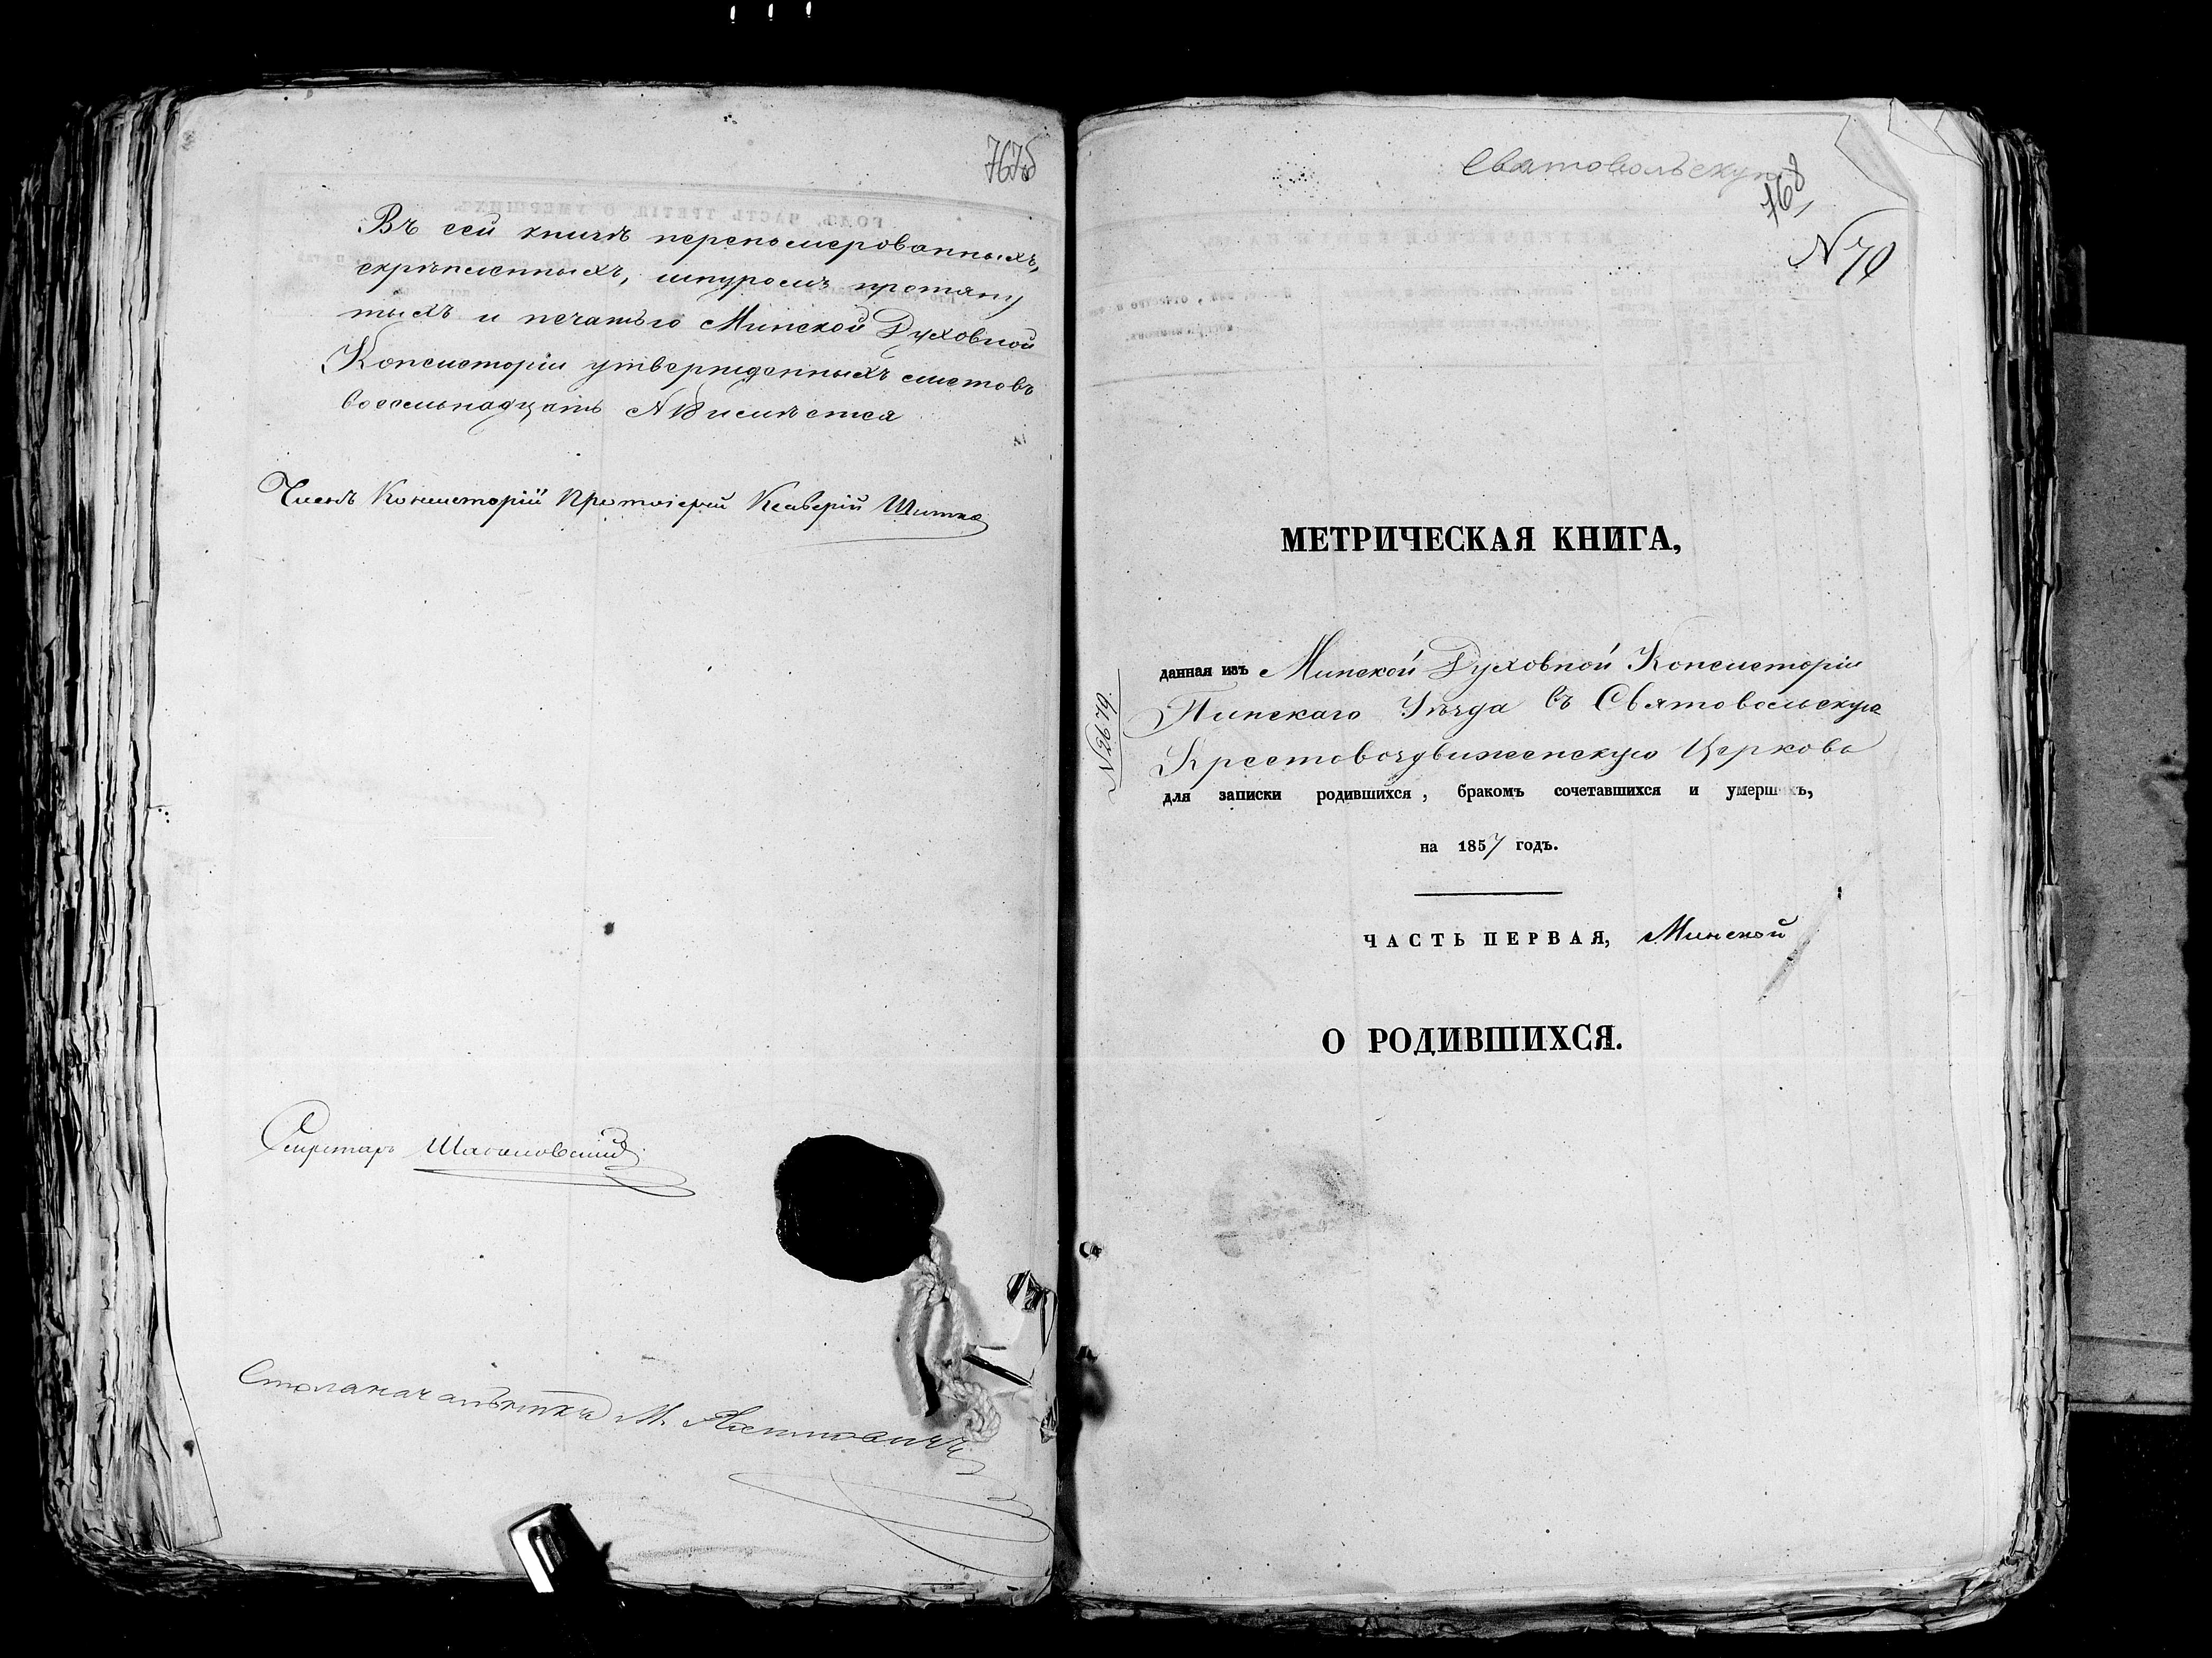 767об
Въ сей книгѣ перепомерованныхъ,
скрѣпленныхъ, шнуромъ протяну
тыхъ и печатью Минской Духовной
Консисторіи утвержденныхъ листовъ
восемьнадцать № 18 имѣется
Членъ Консисторіи Протоіерей Ксаверій
Секретарь
Столоначальникъ М.
Святовольскую
768
№ 70
МЕТРИЧЕСКАЯ КНИГА,
№ 2679.
данная изъ Минской Духовной Консисторіи
Пинскаго Уѣзда въ Святовольскую
Крестовоздвиженскую Церковь
для записки родившихся, бракомъ сочетавшихся и умершихъ,
на 1857 годъ.
ЧАСТЬ ПЕРВАЯ, Минской
О РОДИВШИХСЯ.